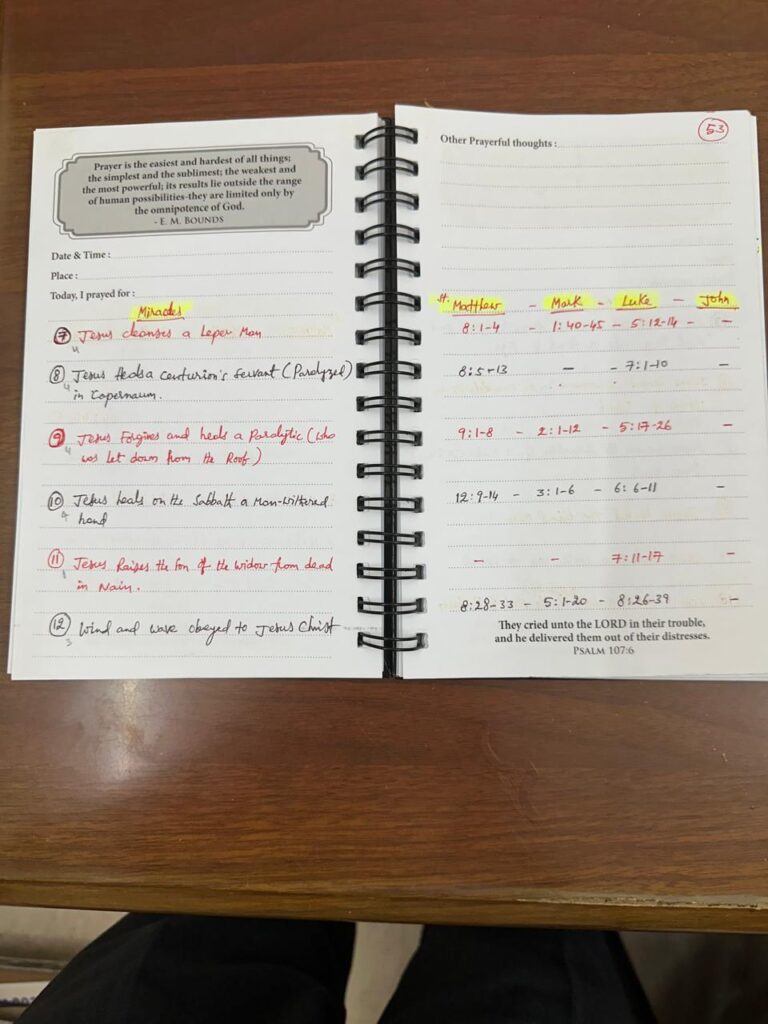 Prayer is the easiest and hardest of all things;
the simplest and the sublimest; the weakest and
the most powerful; its results lie outside the range
of human possibilities-they are limited only by
the omnipotence of God.
- E. M. BOUNDS
Date & Time :
Place :
Today, I prayed for :
Miracles
7 Jesus cleanses a Leper Man
4
8 Jesus Heals a Centurion's Servant (Paralyzed)
4
in Capernaum.
9 Jesus Forgives and heals a Paralytic (who
4
was let down from the Roof)
10 Jesus heals on the Sabbath a Man-withered
4
hand
11 Jesus Raises the Son of the widow from dead
1
in Nain.
12 Wind and wave obeyed to Jesus Christ
3
53
Other Prayerful thoughts :
St. Matthew - Mark - Luke - John
8:1-4 - 1:40-45 - 5:12-14 - -
8:5-13 - - 7:1-10 -
9:1-8 - 2:1-12 - 5:17-26 -
12:9-14 - 3:1-6 - 6:6-11 -
- - 7:11-17 -
8:28-33 - 5:1-20 - 8:26-39 -
They cried unto the LORD in their trouble,
and he delivered them out of their distresses.
PSALM 107:6